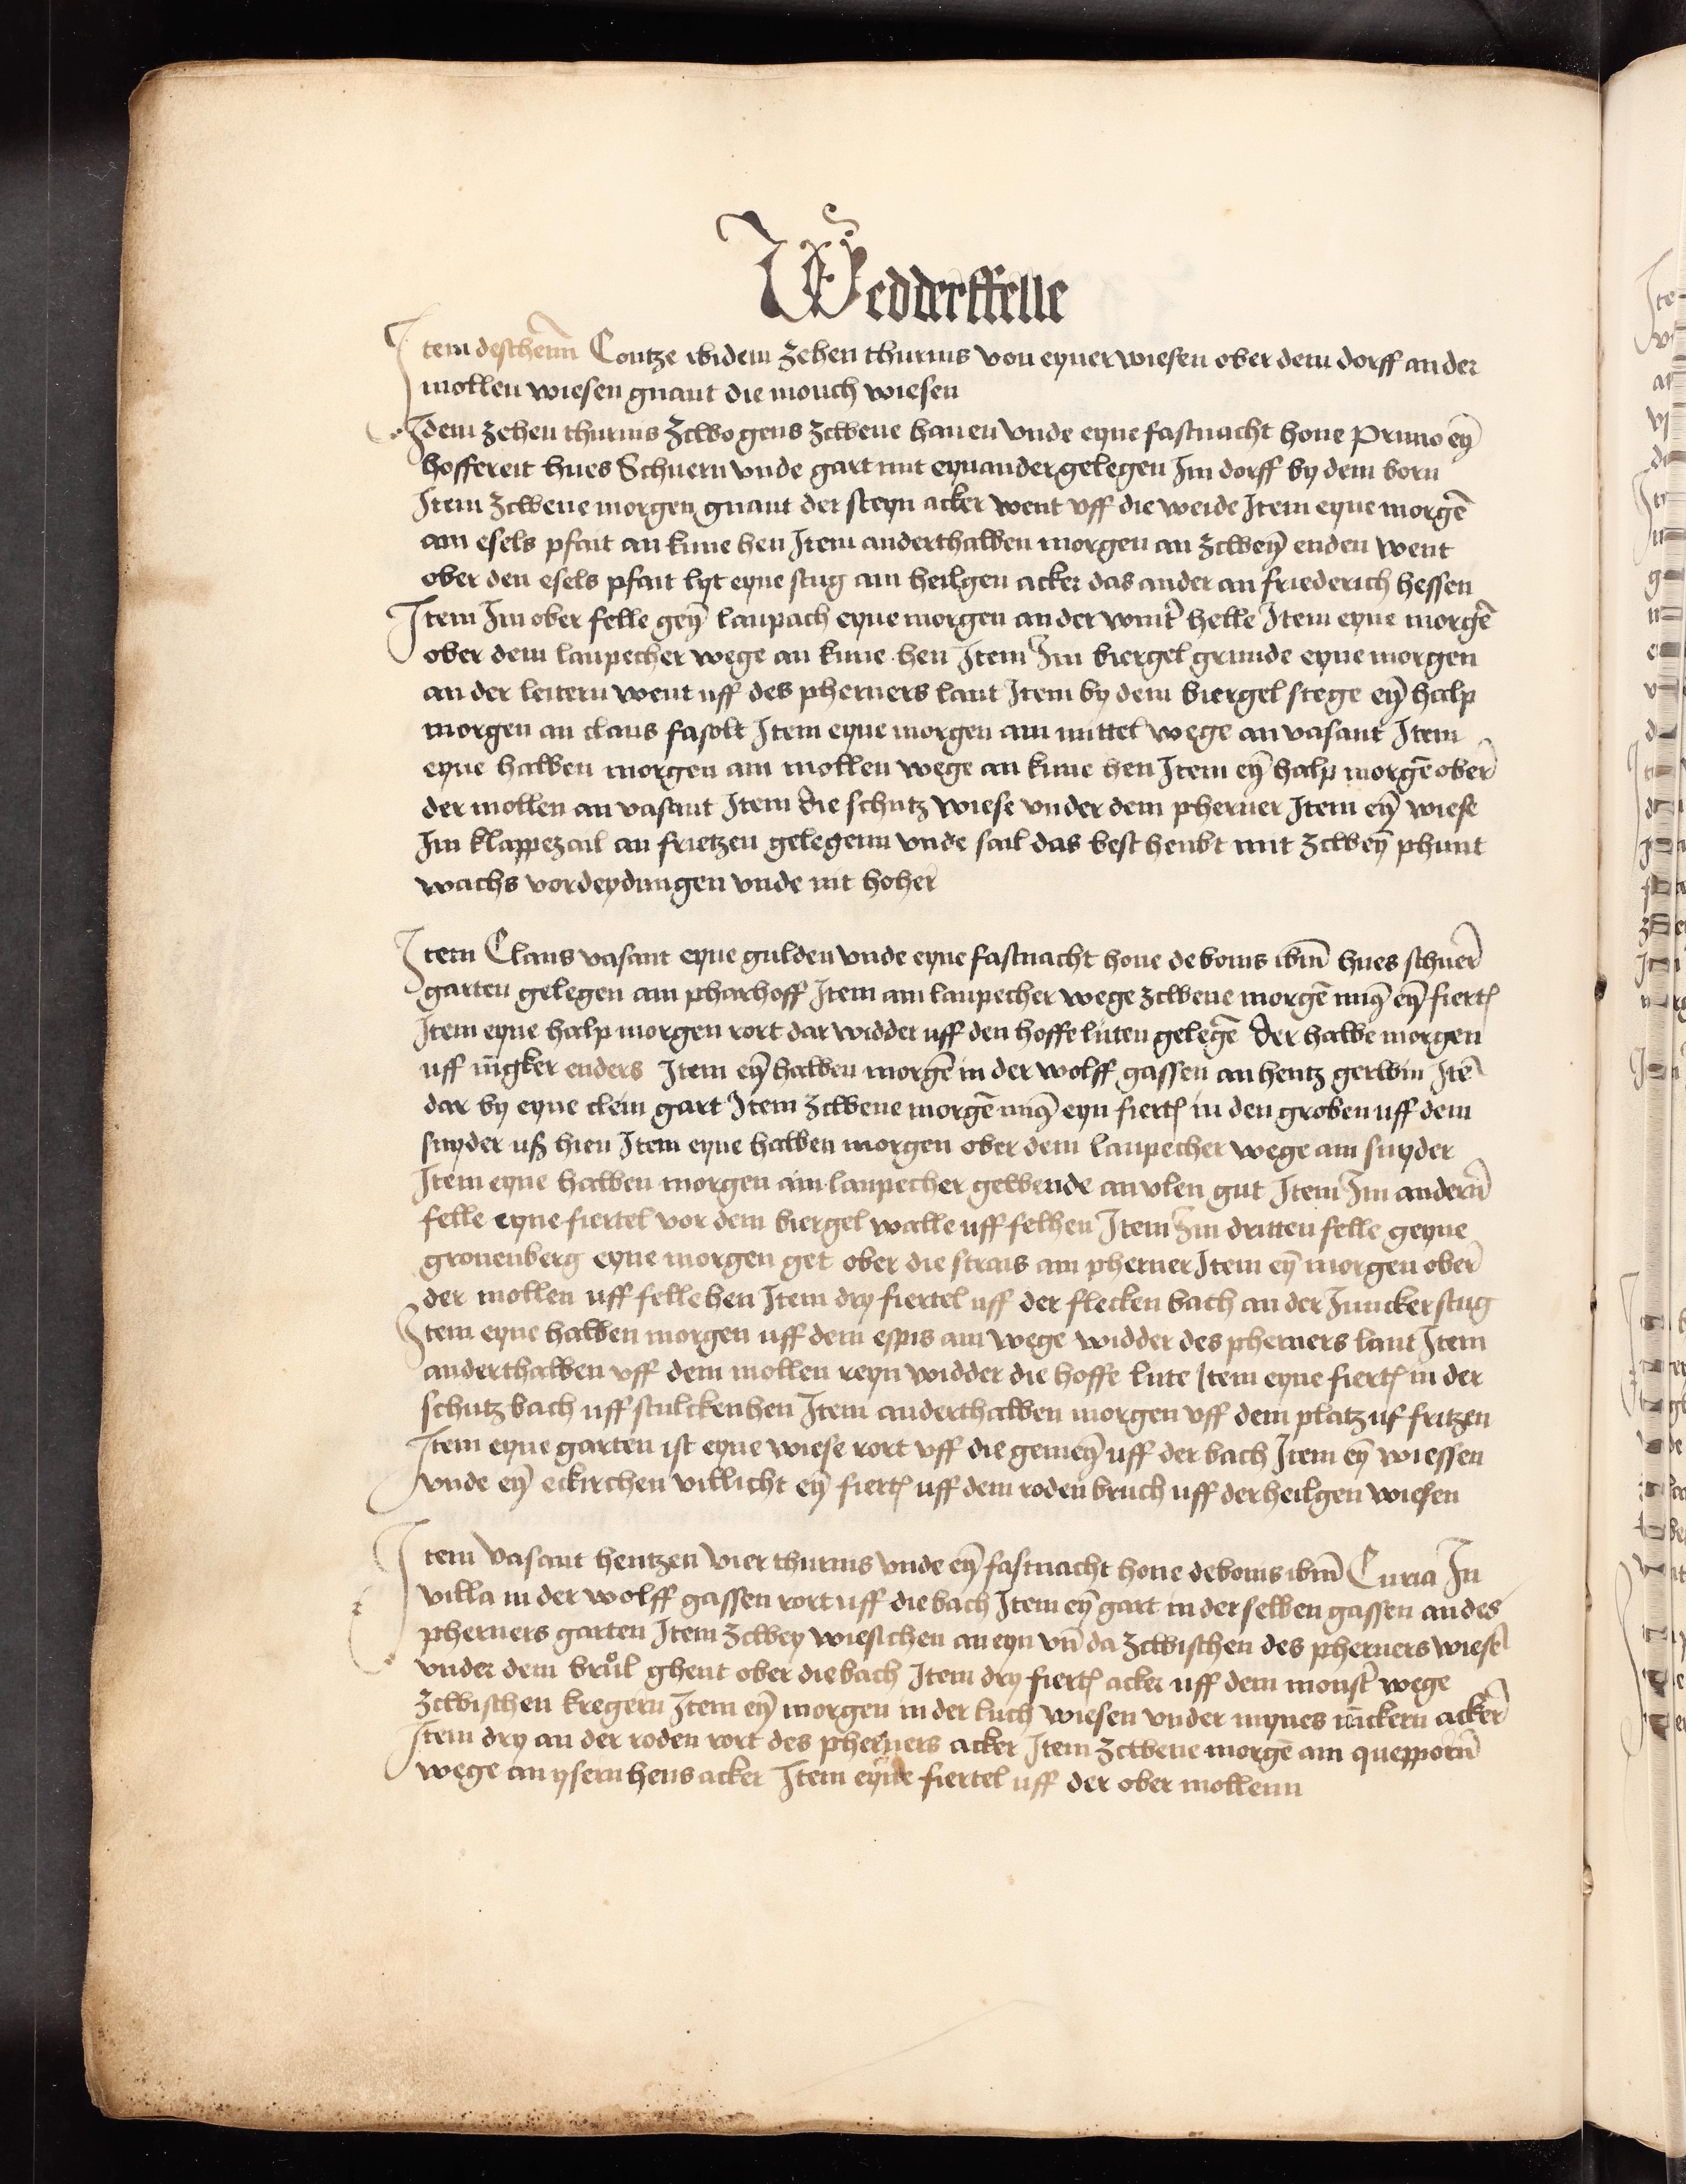 Wedderffelle
Item deschenn Contze ibidem zehen thurnis von eyner wiesen ober dem dorff an der
mollen wiesen gnant die monch wiesen
Idem zehen thurnis zcwo gens zcwene hanen vnde eyne fastnacht hone Primo eyn̄
hoffereit hues Schuern vnde gart mit eynander gelegen Im dorff by dem born
Item zcwene morgen gnant der steyn acker went vff die weide Item eyne morgē
am esels pfait an kune hen Item anderthalben morgen an zcweyn̄ enden went
ober den esels pfait lyt eyne stug am heilgen acker das ander an friederich hessen
Item Im ober felle geyn̄ laupach eyne morgen an der wint̄ helle Item eyne morgē
ober dem laupecher wege an kune hen Item Im biergel grunde eyne morgen
an der leitern went uff des pherners lant Item by dem biergel stege eyn̄ halp
morgen an claus fasolt Item eyne morgen am mittel wege an vasant Item
eyne halben morgen am mollen wege an kune hen Item eyn̄ halp morgē ober
der mollen an vasant Item die schutz wiese vnder dem pherner Item eyn̄ wiese
Im klappezail an frietzen gelegenn vnde sail das best heubt mit zcweyn̄ phunt
wachs vordeydingen vnde nit hoher
Item Claus vasant eyne gulden vnde eyne fastnacht hone de bonis ibm̄ hues schuer
garten gelegen am pharhoff Item am laupecher wege zcwene morgē eyn̄ fiertl
Item eyne halp morgen rort dar widder uff den hoffe luten gelegē der halbe morgen
uff iūgker enders Item eyn̄ halben morgē in der wolff gassen an hentz gerwin Itē
dar by eyne clein gart Item zcwene morgē eyn fiertl in den groben uff dem
snyder uß hien Item eyne halben morgen ober dem laupecher wege am snyder
Item eyne halben morgen am laupecher gewende an vlen gut Item Im andern̄
felle eyne fiertel vor dem biergel walle uff felhen Item Im dritten felle geyne
gronenberg eyne morgen get ober die strais am pherner Item eyn̄ morgen ober
der mollen uff felle hen Item dry fiertel uff der flecken bach an der Juncker stug
Item eyne halben morgen uff dem espis am wege widder des pherners lant Item
anderthalben vff dem mollen reyn widder die hoffe lute Item eyne fiertl in der
schutz bach uff stulcken hen Item anderthalben morgen vff dem platz uf fritzen
Item eyne garten ist eyne wiese rort vff die gemeyn̄ uff der bach Item eyn̄ wiessen
vnde eyn̄ eckirchen villicht eyn̄ fiertl uff dem roden bruch uff der heilgen wiesen
Item vasant hentzen vier thurnis vnde eyn̄ fastnacht hone de bonis ibm̄ Curia In
villa in der wolff gassen rort uff die bach Item eyn̄ gart in der selben gassen an des
pherners garten Item zcwey wiesichen an eyn vn̄ da zcwischen des pherners wiesē
vnder dem brůl ghent ober die bach Item dry fiertl acker uff dem monst̄ wege
zcwischen kregern Item eyn̄ morgen in der luch wiesen vnder mynes iūckern acker
Item dry an der roden rort des pherners acker Item zcwene morgē am quepporn̄
wege an ysern hens acker Item eyne fiertel uff der ober mollenn